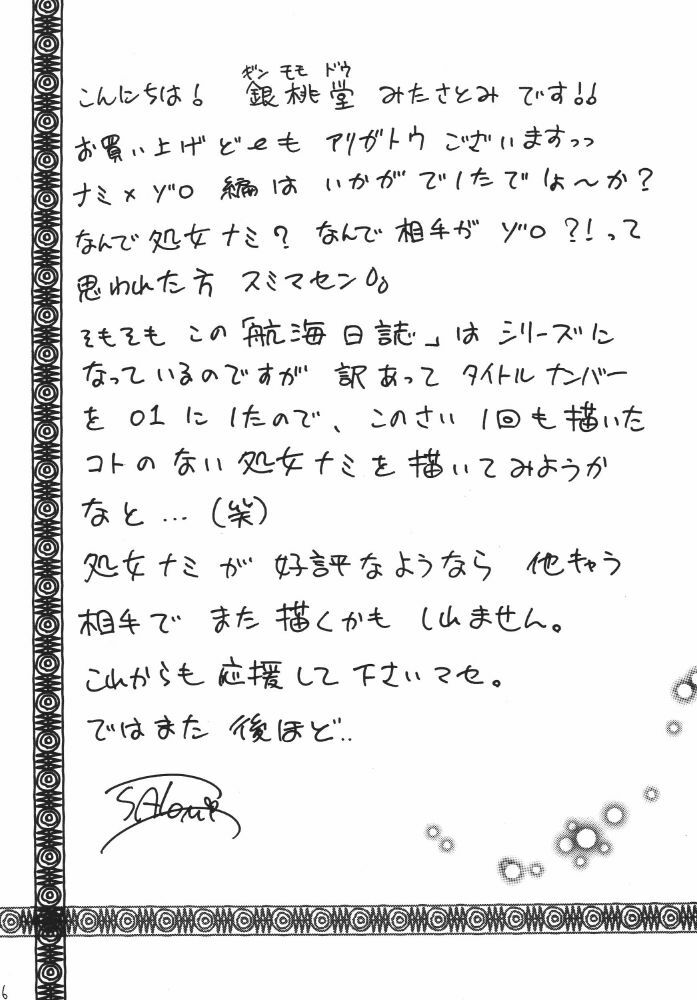 ギンモモドウ
こんにちは! 銀桃堂 みたさとみ です!!
お買い上げど〜も アリガトウ ございますっっ
ナミ×ゾロ 編は いかが でしたでしょ〜か?
なんで処女ナミ? なんで相手が ゾロ?!って
思われた方 スミマセン
そもそも この「航海日誌」は シリーズに
なっているのですが 訳あって タイトルナンバー
を 01 に したので、このさい 1回も描いた
コトのない処女ナミを描いてみようか
なと…(笑)
処女ナミが 好評なようなら 他キャラ
相手で また描くかも しれません。
これからも 応援して下さいマセ。
ではまた 後ほど..
SAtomi
6